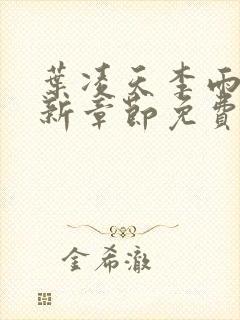 葉凌天李雨
新章節免費
金希澈